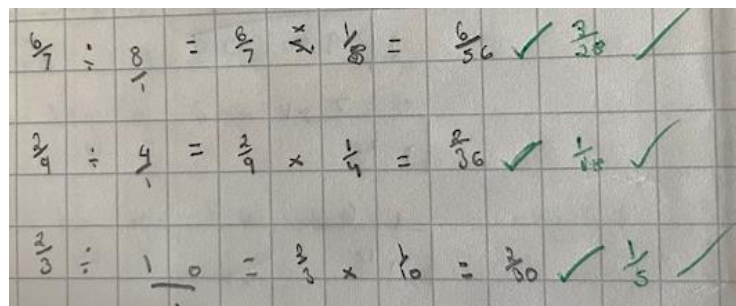 6/7 ÷ 8/1 = 6/7 × 1/8 = 6/56 ✓ 3/28 ✓
2/9 ÷ 4/1 = 2/9 × 1/4 = 2/36 ✓ 1/18 ✓
2/3 ÷ 10/1 = 2/3 × 1/10 = 2/30 ✓ 1/5 ✓